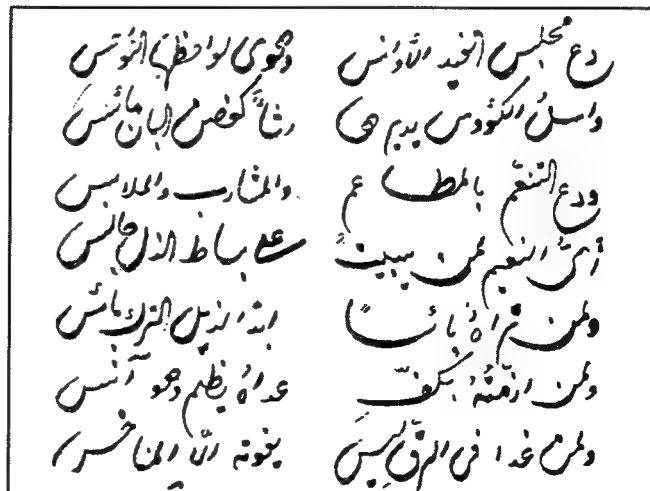 دع مجلس الغيد الأوانس وهوى لواحظها النواعس
واسلُ الكؤوس يديرها رشأً كغصن البان مائس
ودع التنعّم بالمطاعم والمشارب والملابس
أيّ النعيم لمن يبيت على بساط الذل جالس
ولمن تراهُ بائسًا أبدًا لذيل الترك بائس
ولمن أزمّتهُ بكفّ عداهُ يظلم وهو آنس
ولمن غدا في الرقّ ليس يفوته الّا المناخس